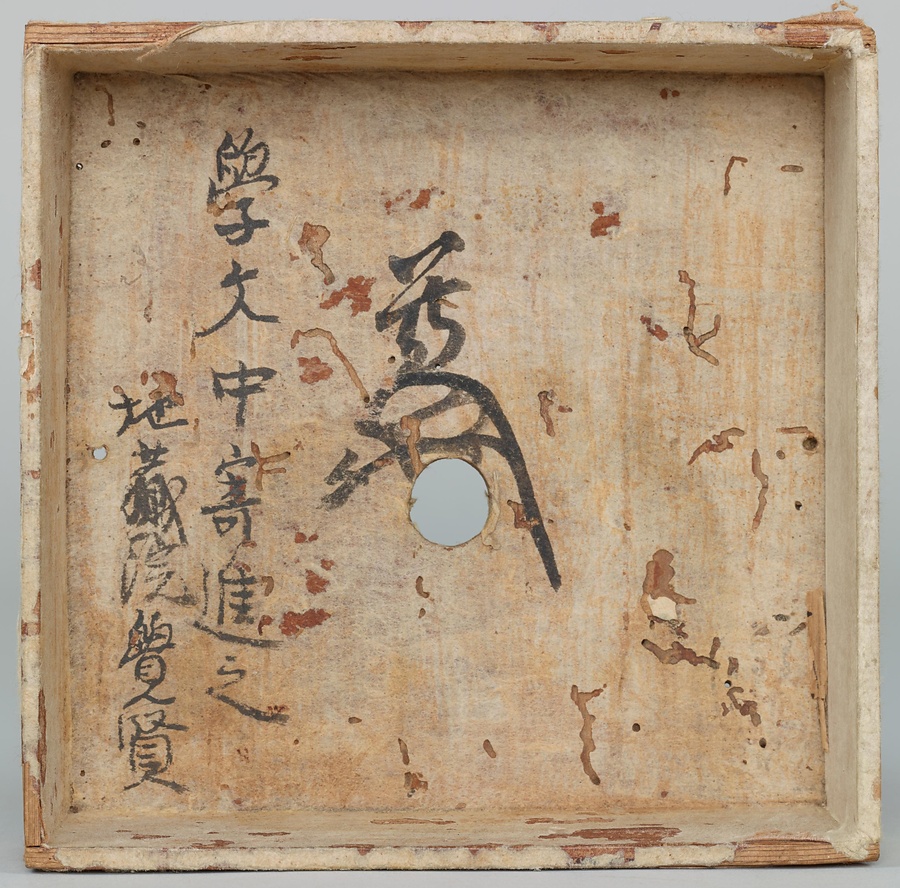 學文中寄進之
地藏院覺賢